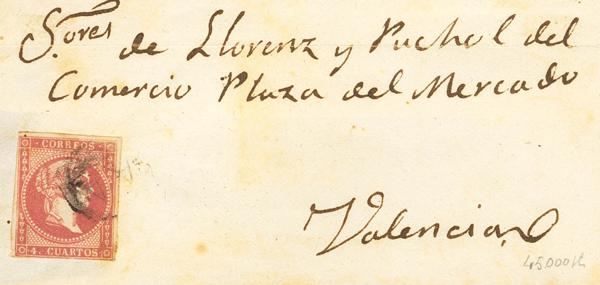 S.ores de Llorenz y Puchol del
Comercio Plaza del Mercado
CORREOS
4. CUARTOS
Valencia